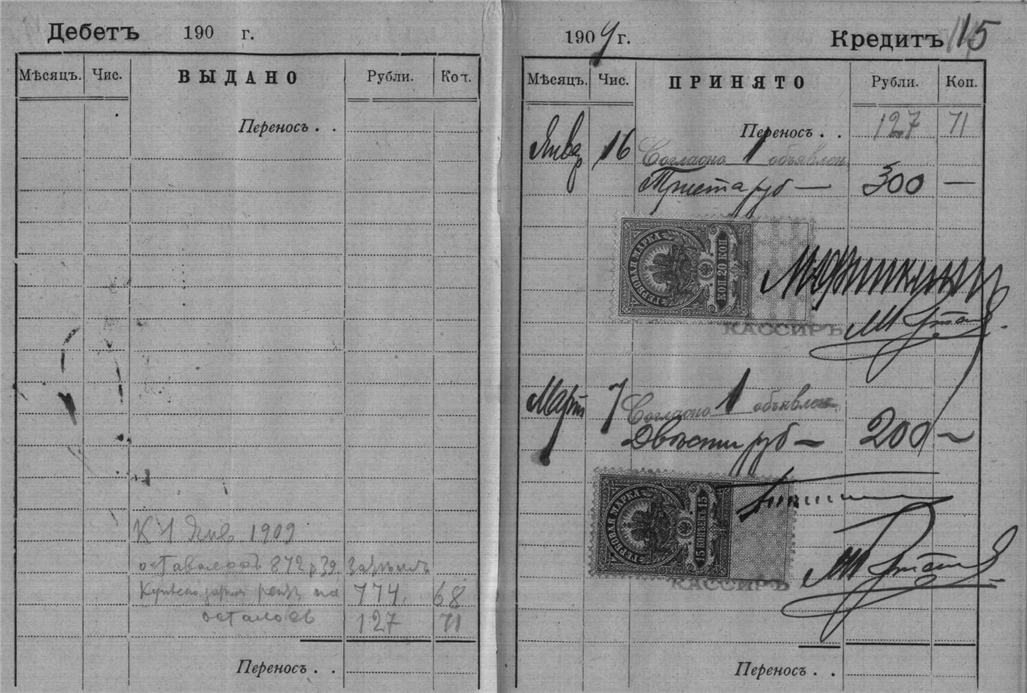 Дебетъ 190 г.
Мѣсяцъ. Чис. ВЫДАНО Рубли. Коп.
Переносъ . .
К 1 Янв 1909
оставалось 872 р 39
774 68
осталось 127 71
Переносъ . .
1909 г. Кредитъ 115
Мѣсяцъ. Чис. ПРИНЯТО Рубли. Коп.
Переносъ . . 127 71
Январ 16 Согласно 1 объявлен
Триста руб — 300 —
ГЕРБОВАЯ МАРКА
КОП 20 КОП
КАССИРЪ
Март 7 Согласно 1 объявлен
Двѣсти руб — 200 —
ГЕРБОВАЯ МАРКА
15 КОПѢЕКЪ 15
КАССИРЪ
Переносъ . .